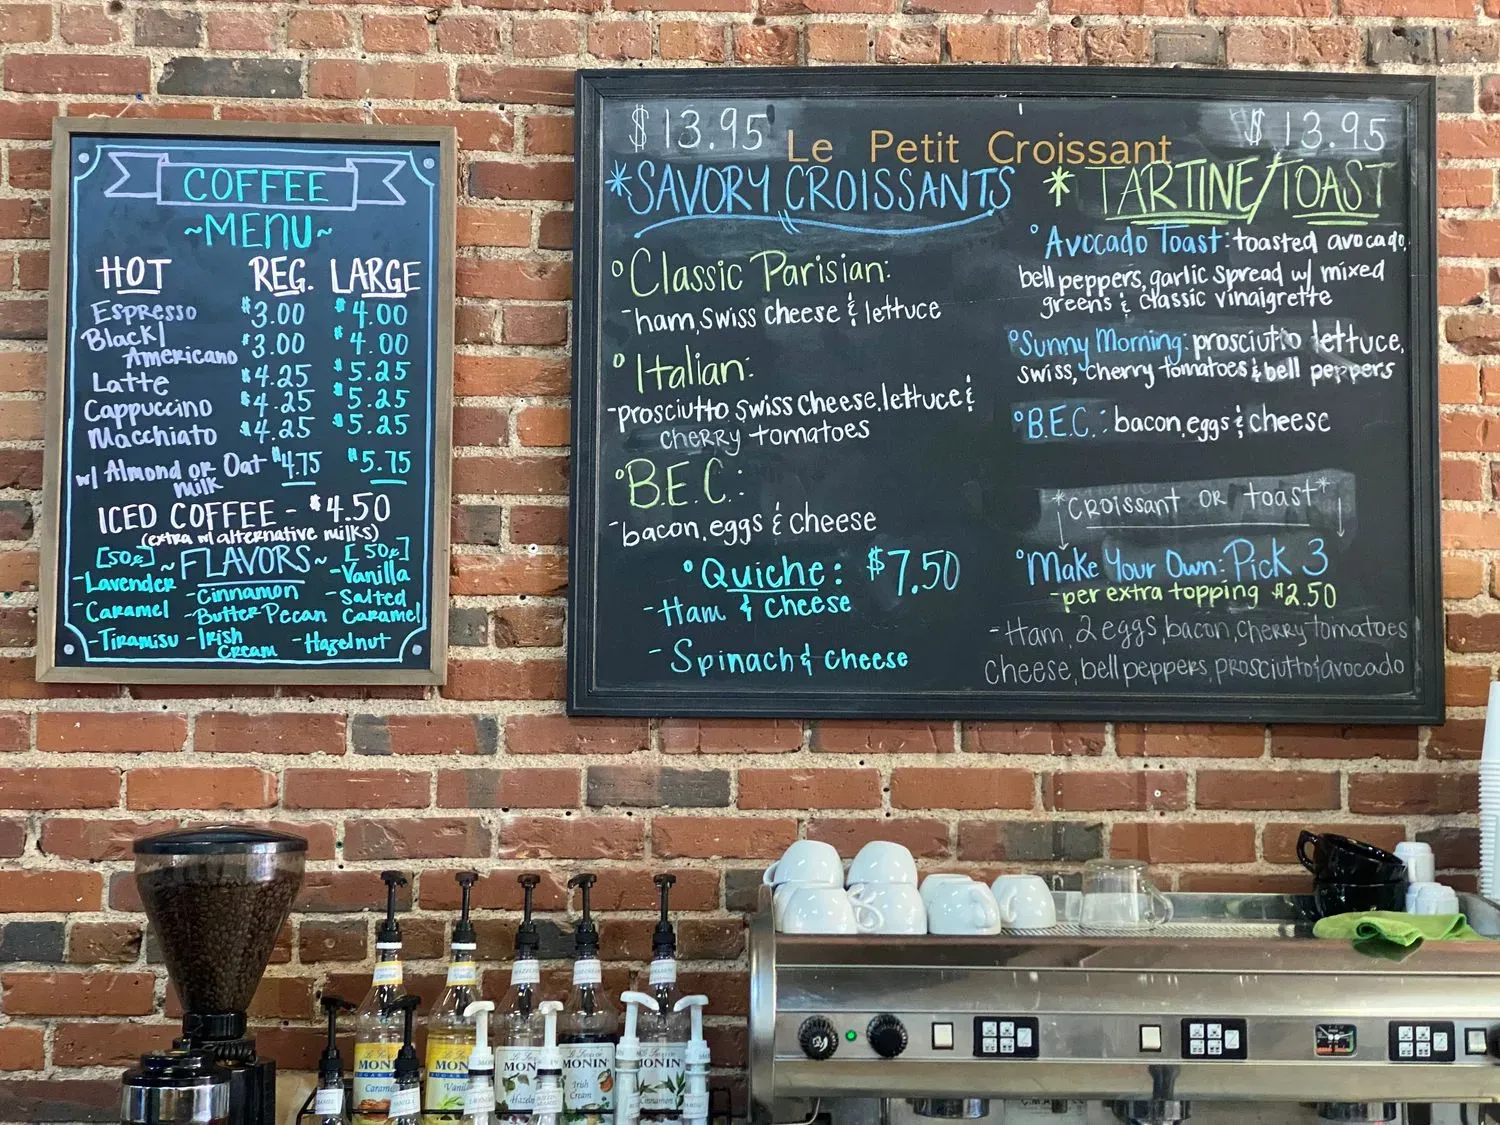 COFFEE
~MENU~
HOT REG. LARGE
Espresso $3.00 $4.00
Black/
Americano $3.00 $4.00
Latte $4.25 $5.25
Cappuccino $4.25 $5.25
Macchiato $4.25 $5.25
w/ Almond or Oat $4.75 $5.75
milk
ICED COFFEE - $4.50
(extra w/ alternative milks)
[50¢] ~FLAVORS~ [50¢]
-Lavender -Cinnamon -Vanilla
-Caramel -Butter Pecan -Salted Caramel
-Tiramisu -Irish Cream -Hazelnut
$13.95 Le Petit Croissant $13.95
*SAVORY CROISSANTS
°Classic Parisian:
-ham, swiss cheese & lettuce
°Italian:
-prosciutto, swiss cheese, lettuce &
cherry tomatoes
°B.E.C.:
-bacon, eggs & cheese
°Quiche: $7.50
-Ham & cheese
-Spinach & cheese
*TARTINE/TOAST
°Avocado Toast: toasted avocado,
bell peppers, garlic spread w/ mixed
greens & classic vinaigrette
°Sunny Morning: prosciutto lettuce,
swiss, cherry tomatoes & bell peppers
°B.E.C.: bacon, eggs & cheese
*Croissant or toast*
°Make Your Own: Pick 3
-per extra topping $2.50
-Ham, 2 eggs, bacon, cherry tomatoes
cheese, bell peppers, prosciutto & avocado
MONIN
Caramel
MONIN
Vanilla
MONIN
MONIN
Irish
Cream
MONIN
Cinnamon